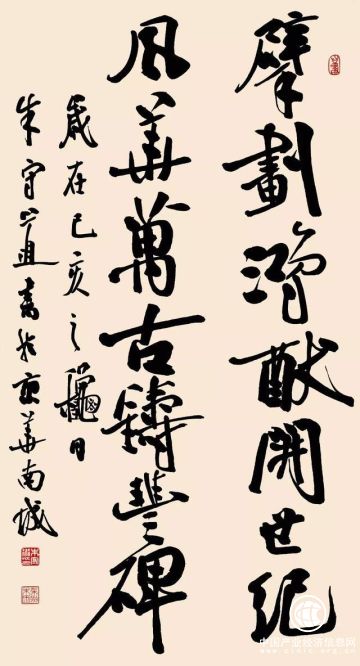 擘劃鴻猷開世紀
風華萬古鑄豐碑
歲在己亥之穐月
朱守道書於京華南城
中国产业经济信息网
www.cinic.org.cn